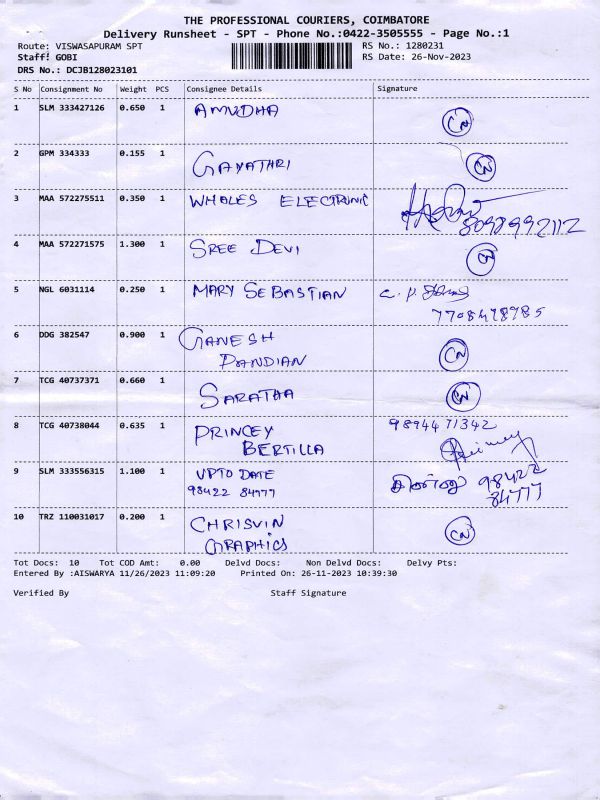 THE PROFESSIONAL COURIERS, COIMBATORE
Delivery Runsheet - SPT - Phone No.:0422-3505555 - Page No.:1
Route: VISWASAPURAM SPT RS No.: 1280231
Staff: GOBI RS Date: 26-Nov-2023
DRS No.: DCJB128023101
S No Consignment No Weight PCS Consignee Details Signature
1 SLM 333427126 0.650 1 AMUDHA CN
2 GPM 334333 0.155 1 GAYATHRI CN
3 MAA 572275511 0.350 1 WHALES ELECTRONIC
8098992112
4 MAA 572271575 1.300 1 SREE DEVI CN
5 NGL 6031114 0.250 1 MARY SEBASTIAN
7708478985
6 DDG 382547 0.900 1 GANESH
PANDIAN CN
7 TCG 40737371 0.660 1 SARATHA CN
8 TCG 40738044 0.635 1 PRINCEY 9894471342
BERTILLA
9 SLM 333556315 1.100 1 UPTO DATE 98422
98422 84777 84777
10 TRZ 110031017 0.200 1 CHRISVIN CN
GRAPHICS
Tot Docs: 10 Tot COD Amt: 0.00 Delvd Docs: Non Delvd Docs: Delvy Pts:
Entered By :AISWARYA 11/26/2023 11:09:20 Printed On: 26-11-2023 10:39:30
Verified By Staff Signature